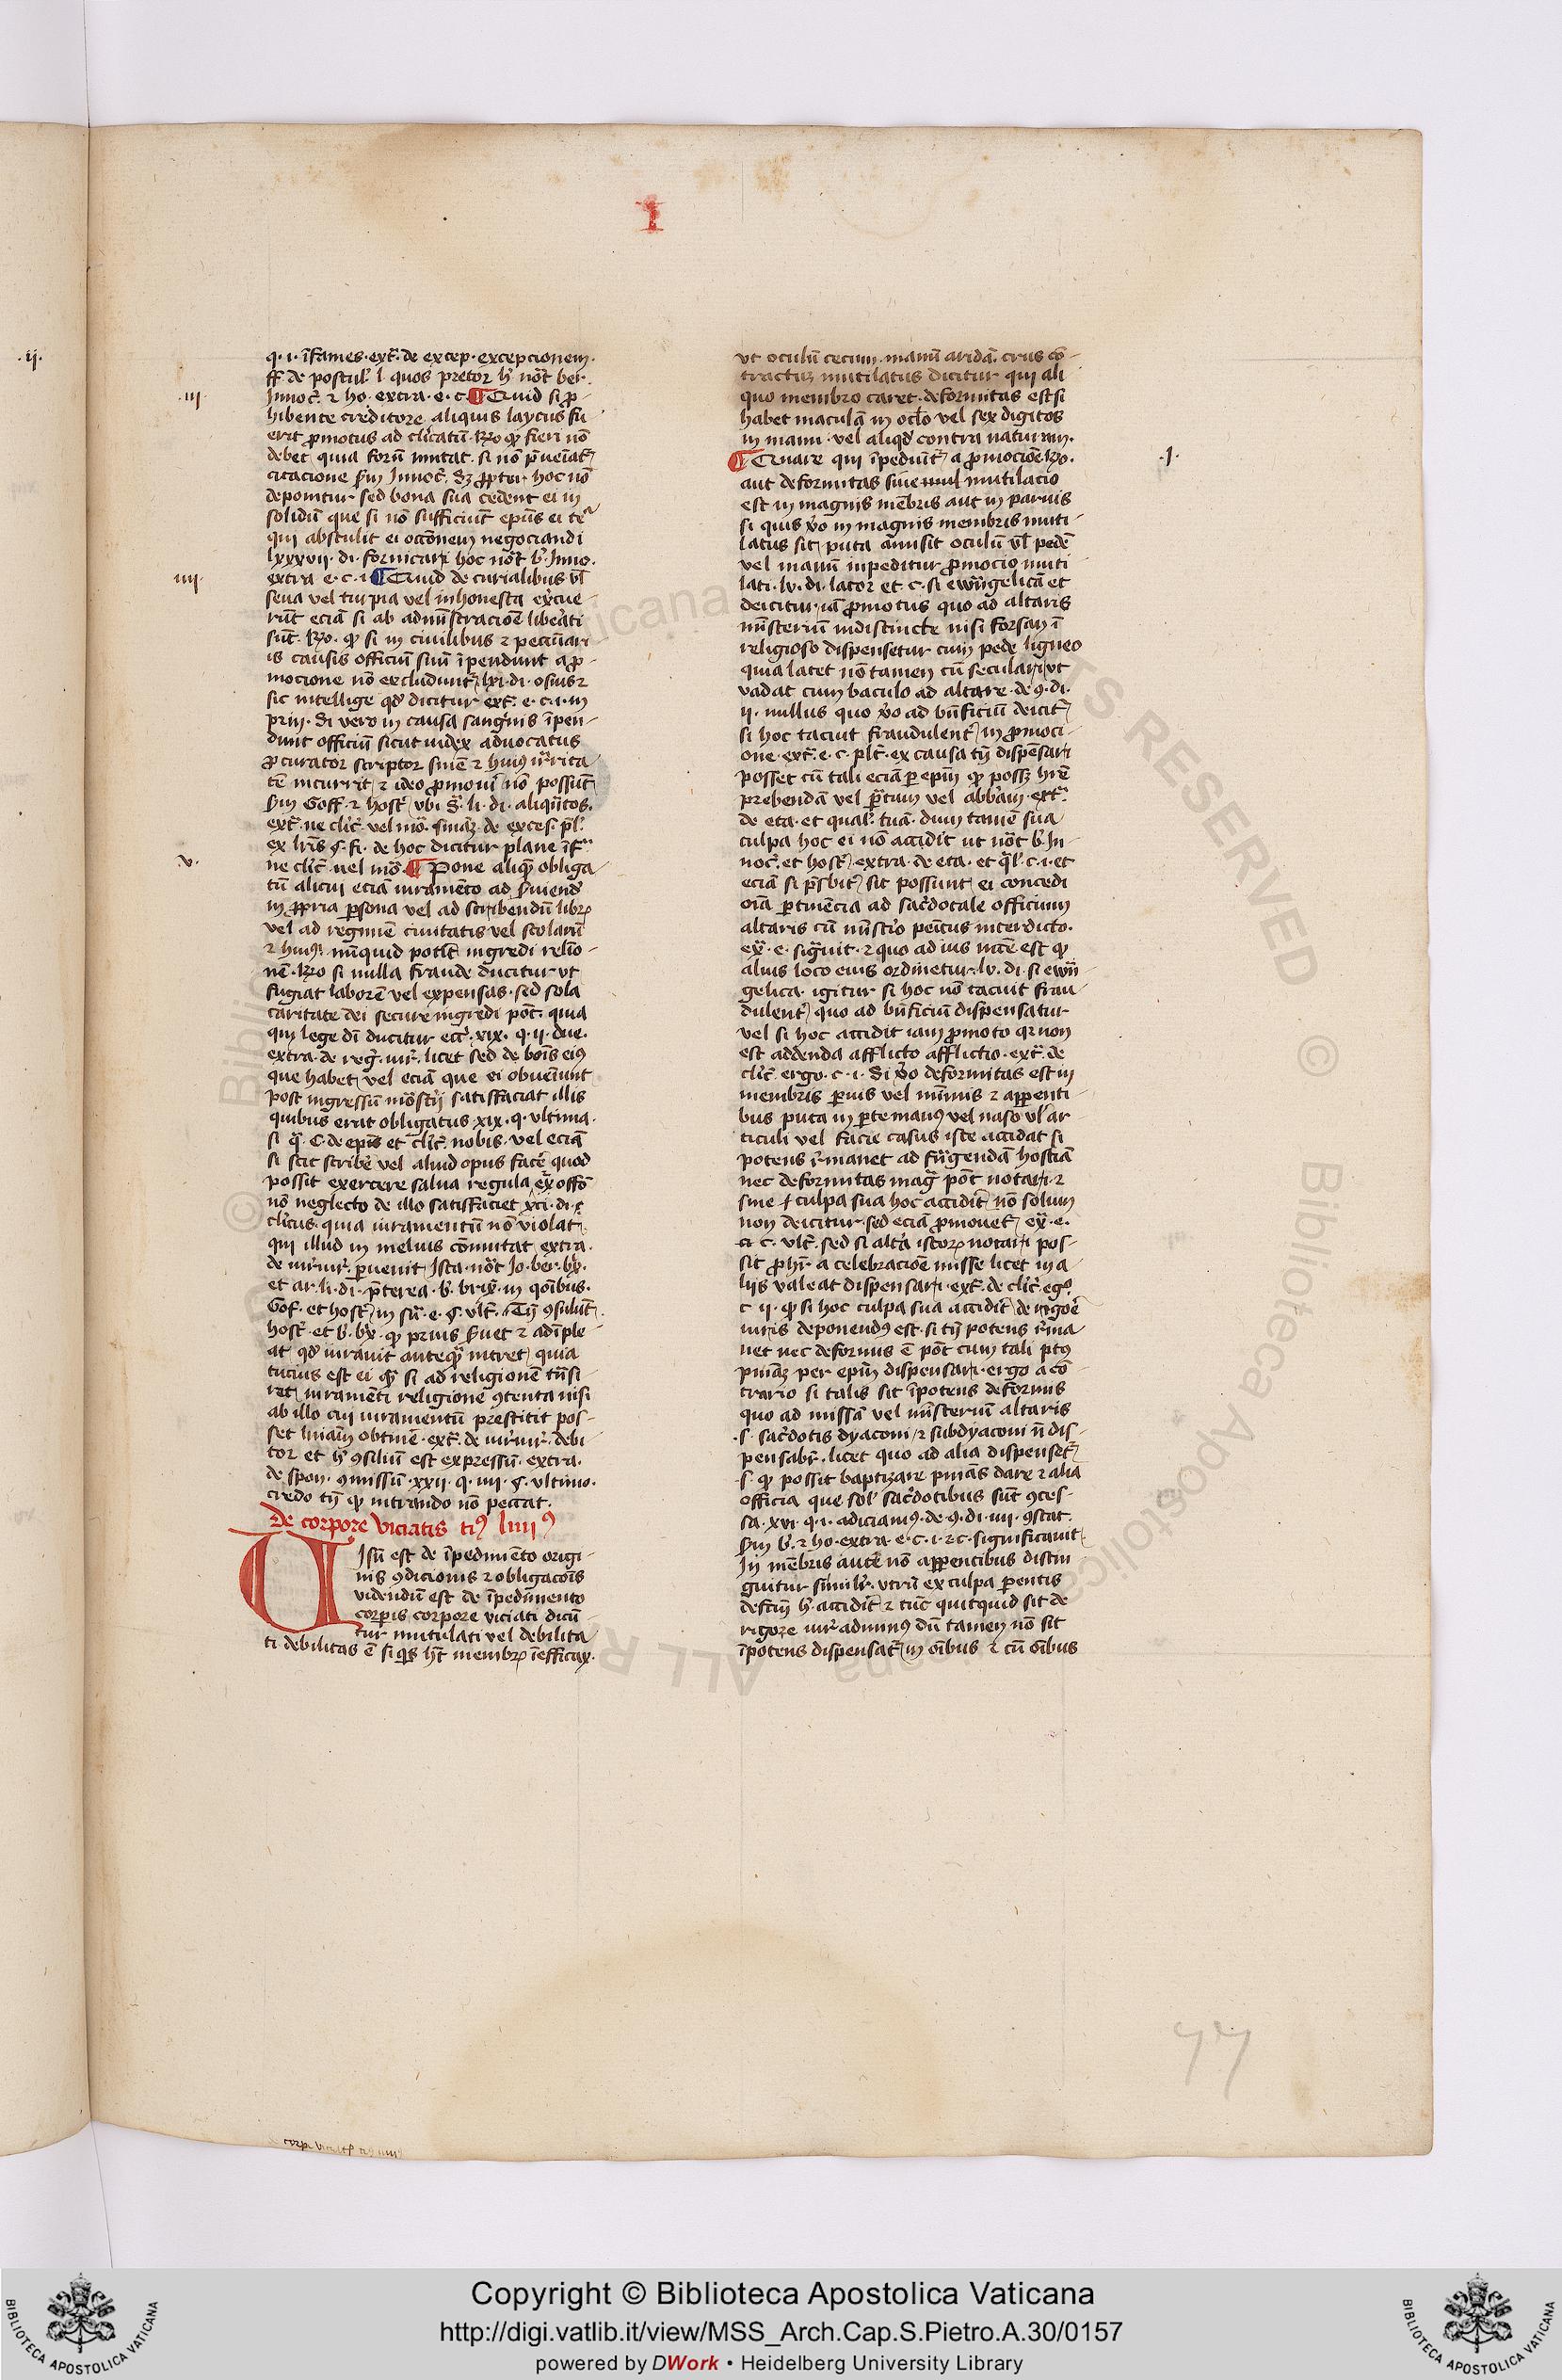 I
q. i. īfames. ext̄. de excep. excepcionem.
ff de postul̄. l. quos pretor h̄ not̄ ber.
Innoc̄. ⁊ ho. extra. e. c. ¶ Quid si ꝓ-
hibente creditore aliquis laycus fu
erit ꝓmotus ad cl̄icatū. Rō ꝙ fieri nō
debet quia forū mutat. si nō p̄ueniat̄
citacione s̄m Innoc̄. sꝫ ꝓpter hoc nō
deponitur sed bona sua cedent ei in
solidū que si nō sufficiūt ep̄us ei te
qui abstulit ei occōnem negociandi
lxxxvii. di. fornicari hoc not̄ b̄. Inno.
extra e. c. i ¶ Quid de curialibus vl̄
seua vel turpia vel inhonesta excue-
rūt eciā si ab admīstracioē libeāti
sūt. Rō. ꝙ si in ciuilibus ⁊ pecūiari
is causis officiū suū īpendunt a ꝓ-
mocione nō excludunt̄. lxi. di. osius ⁊
sic intellige qd̄ dicitur ext̄. e. c. i. in
prin. Si vero in causa sangiſs īpen-
dunt officiū sicut iudex aduocatus
ꝓcurator scriptor
tē incurrit ⁊ ideo ꝓmoueri nō possunt
s̄m Goff. ⁊ host̄. vbi s̄. li. di. aliqn̄tos.
ext̄. ne clic̄. vel mō. de exces. p̄l.
ex lr̄is §. fi. de hoc dicitur plane īf
ne clic̄. uel mō. ¶ Pone aliq̄ obliga
tū alicui eciā iuramēto ad s̄uiend̄
in ꝓpria ꝑsona vel ad scribendū libr̄
vel ad regimē ciuitatis vel scolarū
⁊ huiꝰ. nūquid pot̄t ingredi relio-
nē. Rō si nulla fraude ducitur vt
fugiat laborē vel expensas. sed sola
caritate dei secure ingredi pōt. quia
qui lege dī ducitur ec̄. xix. q. ii. due.
extra. de reg. iur̄. licet sed de bonis eiꝰ
que habet vel eciā que ei obueniunt
post ingressum mōstīj satisfaciat illis
quibus erat obligatus xix. q. vltima.
si q̄. C. de ep̄is et clic̄. nobis. vel eciā
si scit scribe vel aliud opus face quod
possit exercere salua regula
nō neglecto de illo satisfaciet xci. di. c
cl̄icus. quia iuramentū nō violat.
qui illud in melius cōmutat extra.
de iur̄iur̄. ꝑuenit. Ista not̄ Io. ber. bx̄.
et ar. li. di. p̄terea. b̄. brix̄. in qōibus.
Gof. et host̄. in sū. e. §. vlt̄. Tn̄ ꝯsulūt
host̄. et b̄. bx̄. ꝙ prius s̄uet ⁊ adīple
at qd̄ iurauit anteq̄ intret quia
tucius est ei q̄ si ad religionē trāsi
ret iuramēti religione ꝯtenta nisi
ab illo cui iuramentū prestitit pos-
set lniam obtinē. ext̄. de iur̄iur̄. debi
tor et h̄ ꝯsiliū est expressū. extra.
de spon. ꝯmissū. xxii. q. iiii. §. vltimo.
credo tn̄ ꝙ intrando nō peccat.
De corpore Viciatis tiꝰ liiii ꝰ
Uisū est de īpedimēto origi-
nis ꝯdicionis ⁊ obligacōis
videndū est de īpedimento
corporis corpore viciati dicū-
tur mutulati vel debilita
ti debilitas ē si qs ht̄ membr̄ īefficax.
vt oculū cecum. manū aridā. crus cō-
tractū mutilatus dicitur qui ali
quo membro caret. deformitas est si
habet maculā in oclo vel sex digitos
in manu. vel aliqd̄ contra naturam.
¶ Quare qui īpediūt̄ a ꝓmocioē. Rō.
aut deformitas siue mul mutilacio
est in magnis mēbris aut in paruis
si quis v̄o in magnis membris muti-
latus sit puta amisit oculū vl̄ pedē
vel manū inpeditur ꝓmocio muti
lati. lv. di. lator et c. si ewāgelicā et
deicitur iā ꝓmotus quo ad altaris
mīsteriū indistincte nisi forsan ī
religioso dispensetur cum pede ligneo
quia latet nō tamen cū seculari vt
vadat cum baculo ad altare. de ꝯ. di.
ii. nullus quo v̄o ad bn̄ficiū deicit̄
si hoc tacuit fraudulent̄ in ꝓmoci-
one. ext̄. e. c. plt̄. ex causa tn̄ dispēsari
posset cū tali eciā ꝑ epm̄ ꝙ possꝫ hr̄e
prebendā vel p̄tum vel abb̄iam. ext̄.
de eta. et qual. tuā. dum tamē sua
culpa hoc ei nō accidit ut not̄ b̄. In-
noc̄. et host̄. extra. de eta. et ql̄. c. i. et
eciā si p̄sbit̄ sit possunt ei concedi
oīa ꝑtinēcia ad sac̄dotale officium
altaris cū mīstio penitus interdicto.
ex̄. e. siḡuit. ⁊ quo ad ius incē est ꝙ
alius loco eius ordinetur. lv. di. si ewā
gelica. igitur si hoc nō tacuit frau-
dulent̄ quo ad bn̄ficiū dispensatur
vel si hoc accidit iam ꝓmoto qr non
est addenda afflicto afflictio. ext̄. de
clic̄. egro. c. i. Si v̄o deformitas est in
membris ꝑuis vel minimis ⁊ apparenti-
bus puta in ꝑte manꝰ vel naso vl̄ ar
ticuli vel facie casus iste accidat si
potens r̄manet ad frāgendā hostiā
nec deformitas maḡ pōt notari. ⁊
sine culpa sua hoc accidit nō solum
non deicitur sed eciā ꝓmouet̄ ex̄. e.
c. vlt̄. sed si altā istor̄ notari pos-
sit ꝓhr̄ a celebracioē misse licet in a
liis valeat dispensari. ext̄. de clic̄. eg.
c ii. ꝙ si hoc culpa sua accidit de rigoē
iuris deponendꝰ est. si tn̄ potens r̄ma
net nec deformis ē pōt cum tali ptꝰ
pnīaꝫ per epm̄ dispensari. ergo a cō
trario si talis sit īpotens deformis
quo ad missā vel mīsteriū altaris
.s. sac̄dotis dyaconi ⁊ subdyaconi n̄ dis-
pensabr̄. licet quo ad alia dispenset̄
.s. ꝙ possit baptizare pnīas dare ⁊ alia
officia que sol sac̄dotibus sūt ꝯces-
sa. xvi. q. i. adiciamꝰ. de ꝯ. di. iiii. ꝯstat.
s̄m b̄. ⁊ ho. extra. e. c. i. ⁊ c. significauit
In mēbris autē nō apparentibus distin
guitur similr̄. vtrū ex culpa ꝑpentis
defectꝰ h̄ accidit ⁊ tūc quitquid sit de
rigore iur̄ adminꝰ dū tamen nō sit
īpotens dispensat̄ in oībus ⁊ cū oībus
.ii.
.iii.
iiii.
.v.
.I.
77
Copyright © Biblioteca Apostolica Vaticana
http://digi.vatlib.it/view/MSS_Arch.Cap.S.Pietro.A.30/0157
powered by DWork • Heidelberg University Library
BIBLIOTECA APOSTOLICA VATICANA
BIBLIOTECA APOSTOLICA VATICANA